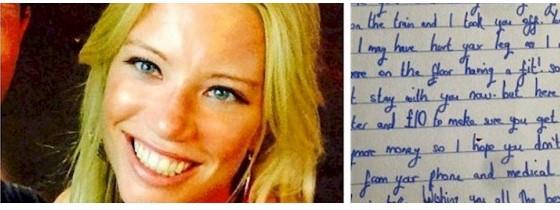 on the train and I took you off.
I may have hurt your leg as I
were on the floor having a fit! So
t stay with you now. but here
ter and £10 to make sure you get
more money so I hope you don't
from your phone and medical
Wishing you all the